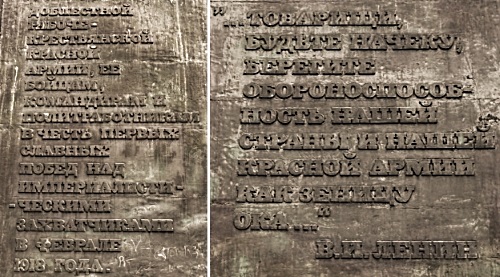 ДОБЛЕСТНОЙ
РАБОЧЕ-
КРЕСТЬЯНСКОЙ
КРАСНОЙ
АРМИИ, ЕЕ
БОЙЦАМ,
КОМАНДИРАМ И
ПОЛИТРАБОТНИКАМ
В ЧЕСТЬ ПЕРВЫХ
СЛАВНЫХ
ПОБЕД НАД
ИМПЕРИАЛИСТИ-
-ЧЕСКИМИ
ЗАХВАТЧИКАМИ
В ФЕВРАЛЕ
1918 ГОДА.
"...ТОВАРИЩИ,
БУДЬТЕ НАЧЕКУ,
БЕРЕГИТЕ
ОБОРОНОСПОСОБ-
НОСТЬ НАШЕЙ
СТРАНЫ И НАШЕЙ
КРАСНОЙ АРМИИ
КАК ЗЕНИЦУ
ОКА..."
В.И. ЛЕНИН